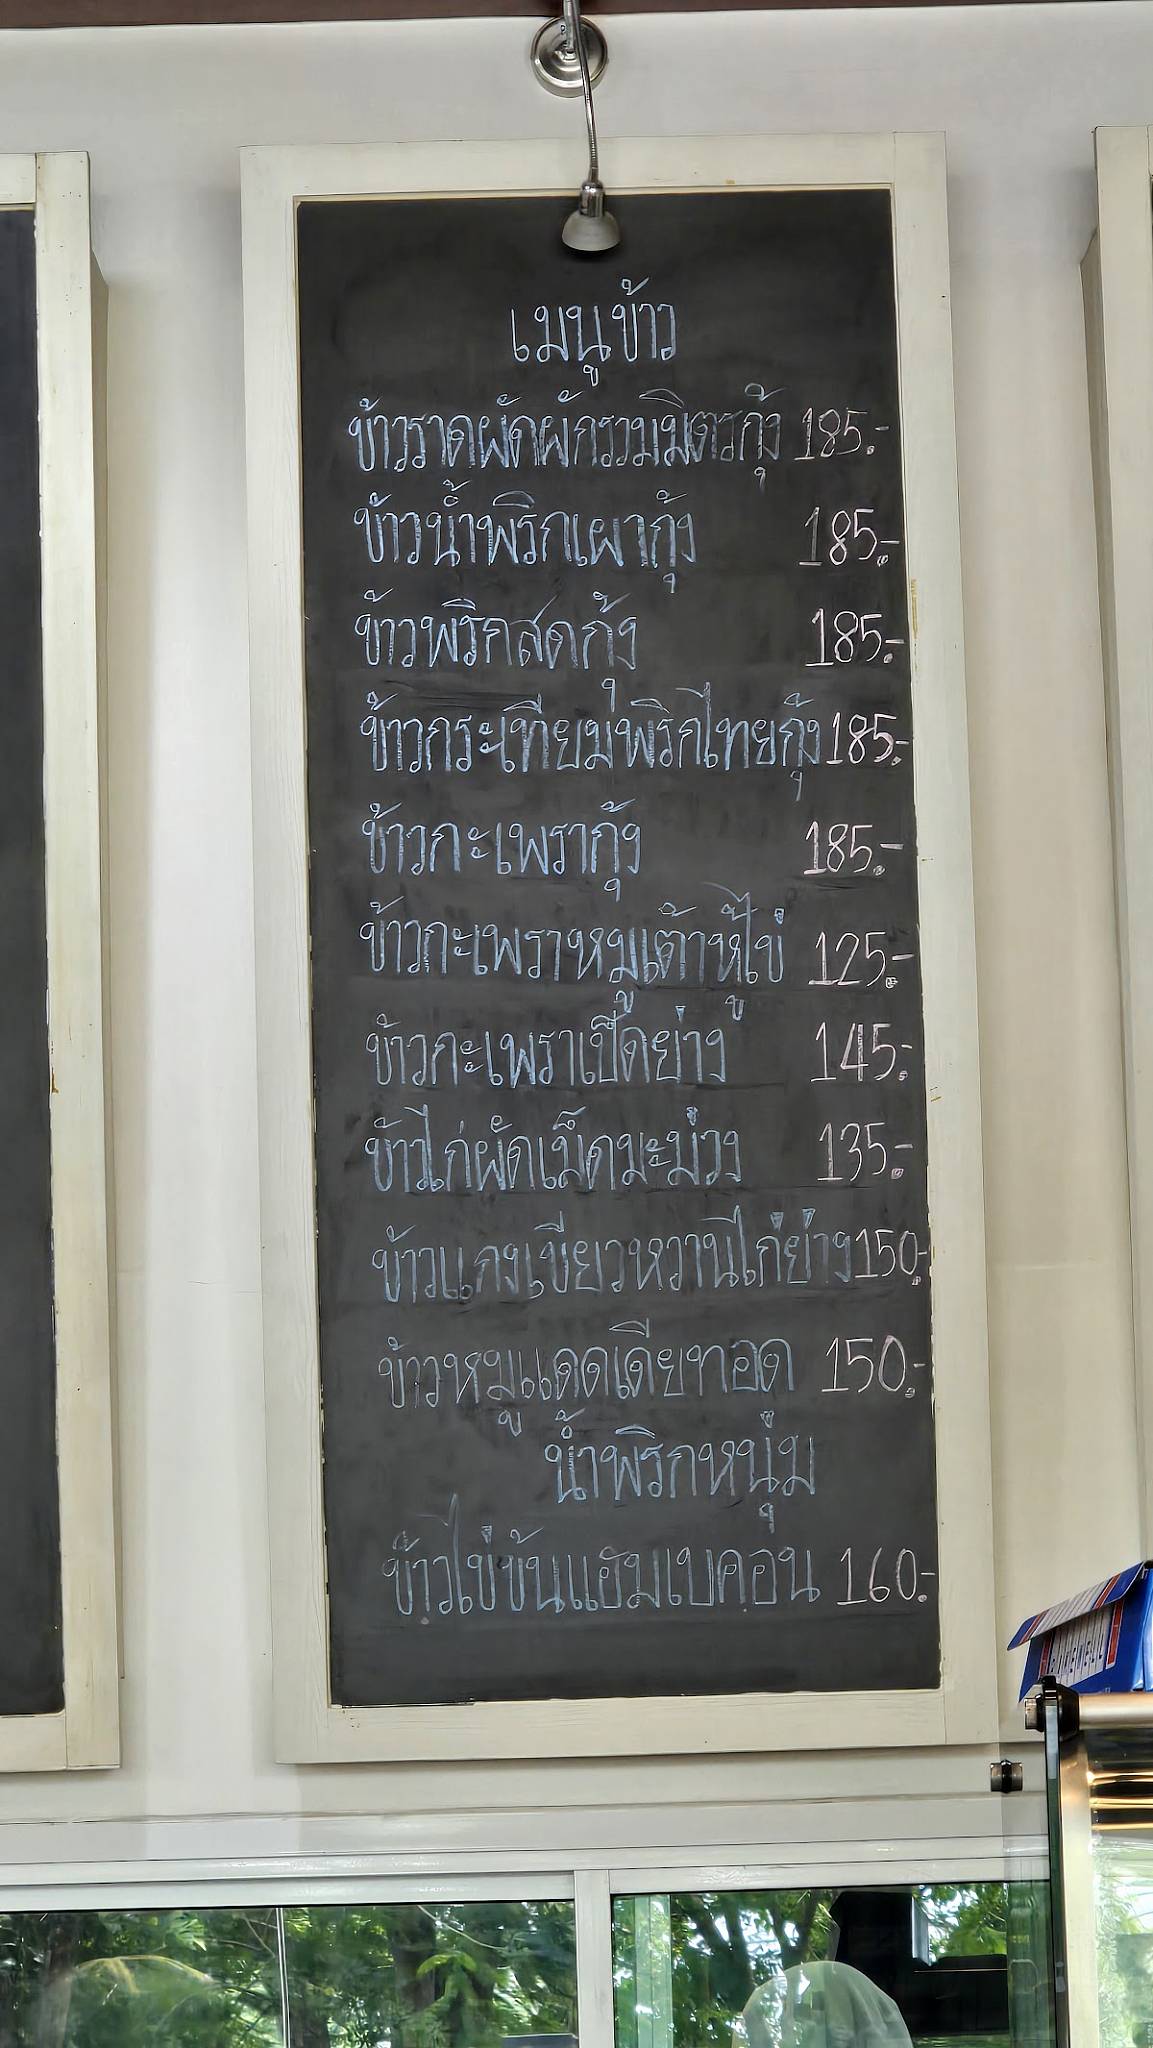 เมนูข้าว
ข้าวราดผัดผักรวมมิตรกุ้ง 185.-
ข้าวน้ำพริกเผากุ้ง 185.-
ข้าวพริกสดกุ้ง 185.-
ข้าวกระเทียมพริกไทยกุ้ง 185.-
ข้าวกะเพรากุ้ง 185.-
ข้าวกะเพราหมูเต้าหู้ไข่ 125.-
ข้าวกะเพราเป็ดย่าง 145.-
ข้าวไก่ผัดเม็ดมะม่วง 135.-
ข้าวแกงเขียวหวานไก่ย่าง 150.-
ข้าวหมูแดดเดียทอด 150.-
น้ำพริกหนุ่ม
ข้าวไข่ข้นแฮมเบคอน 160.-